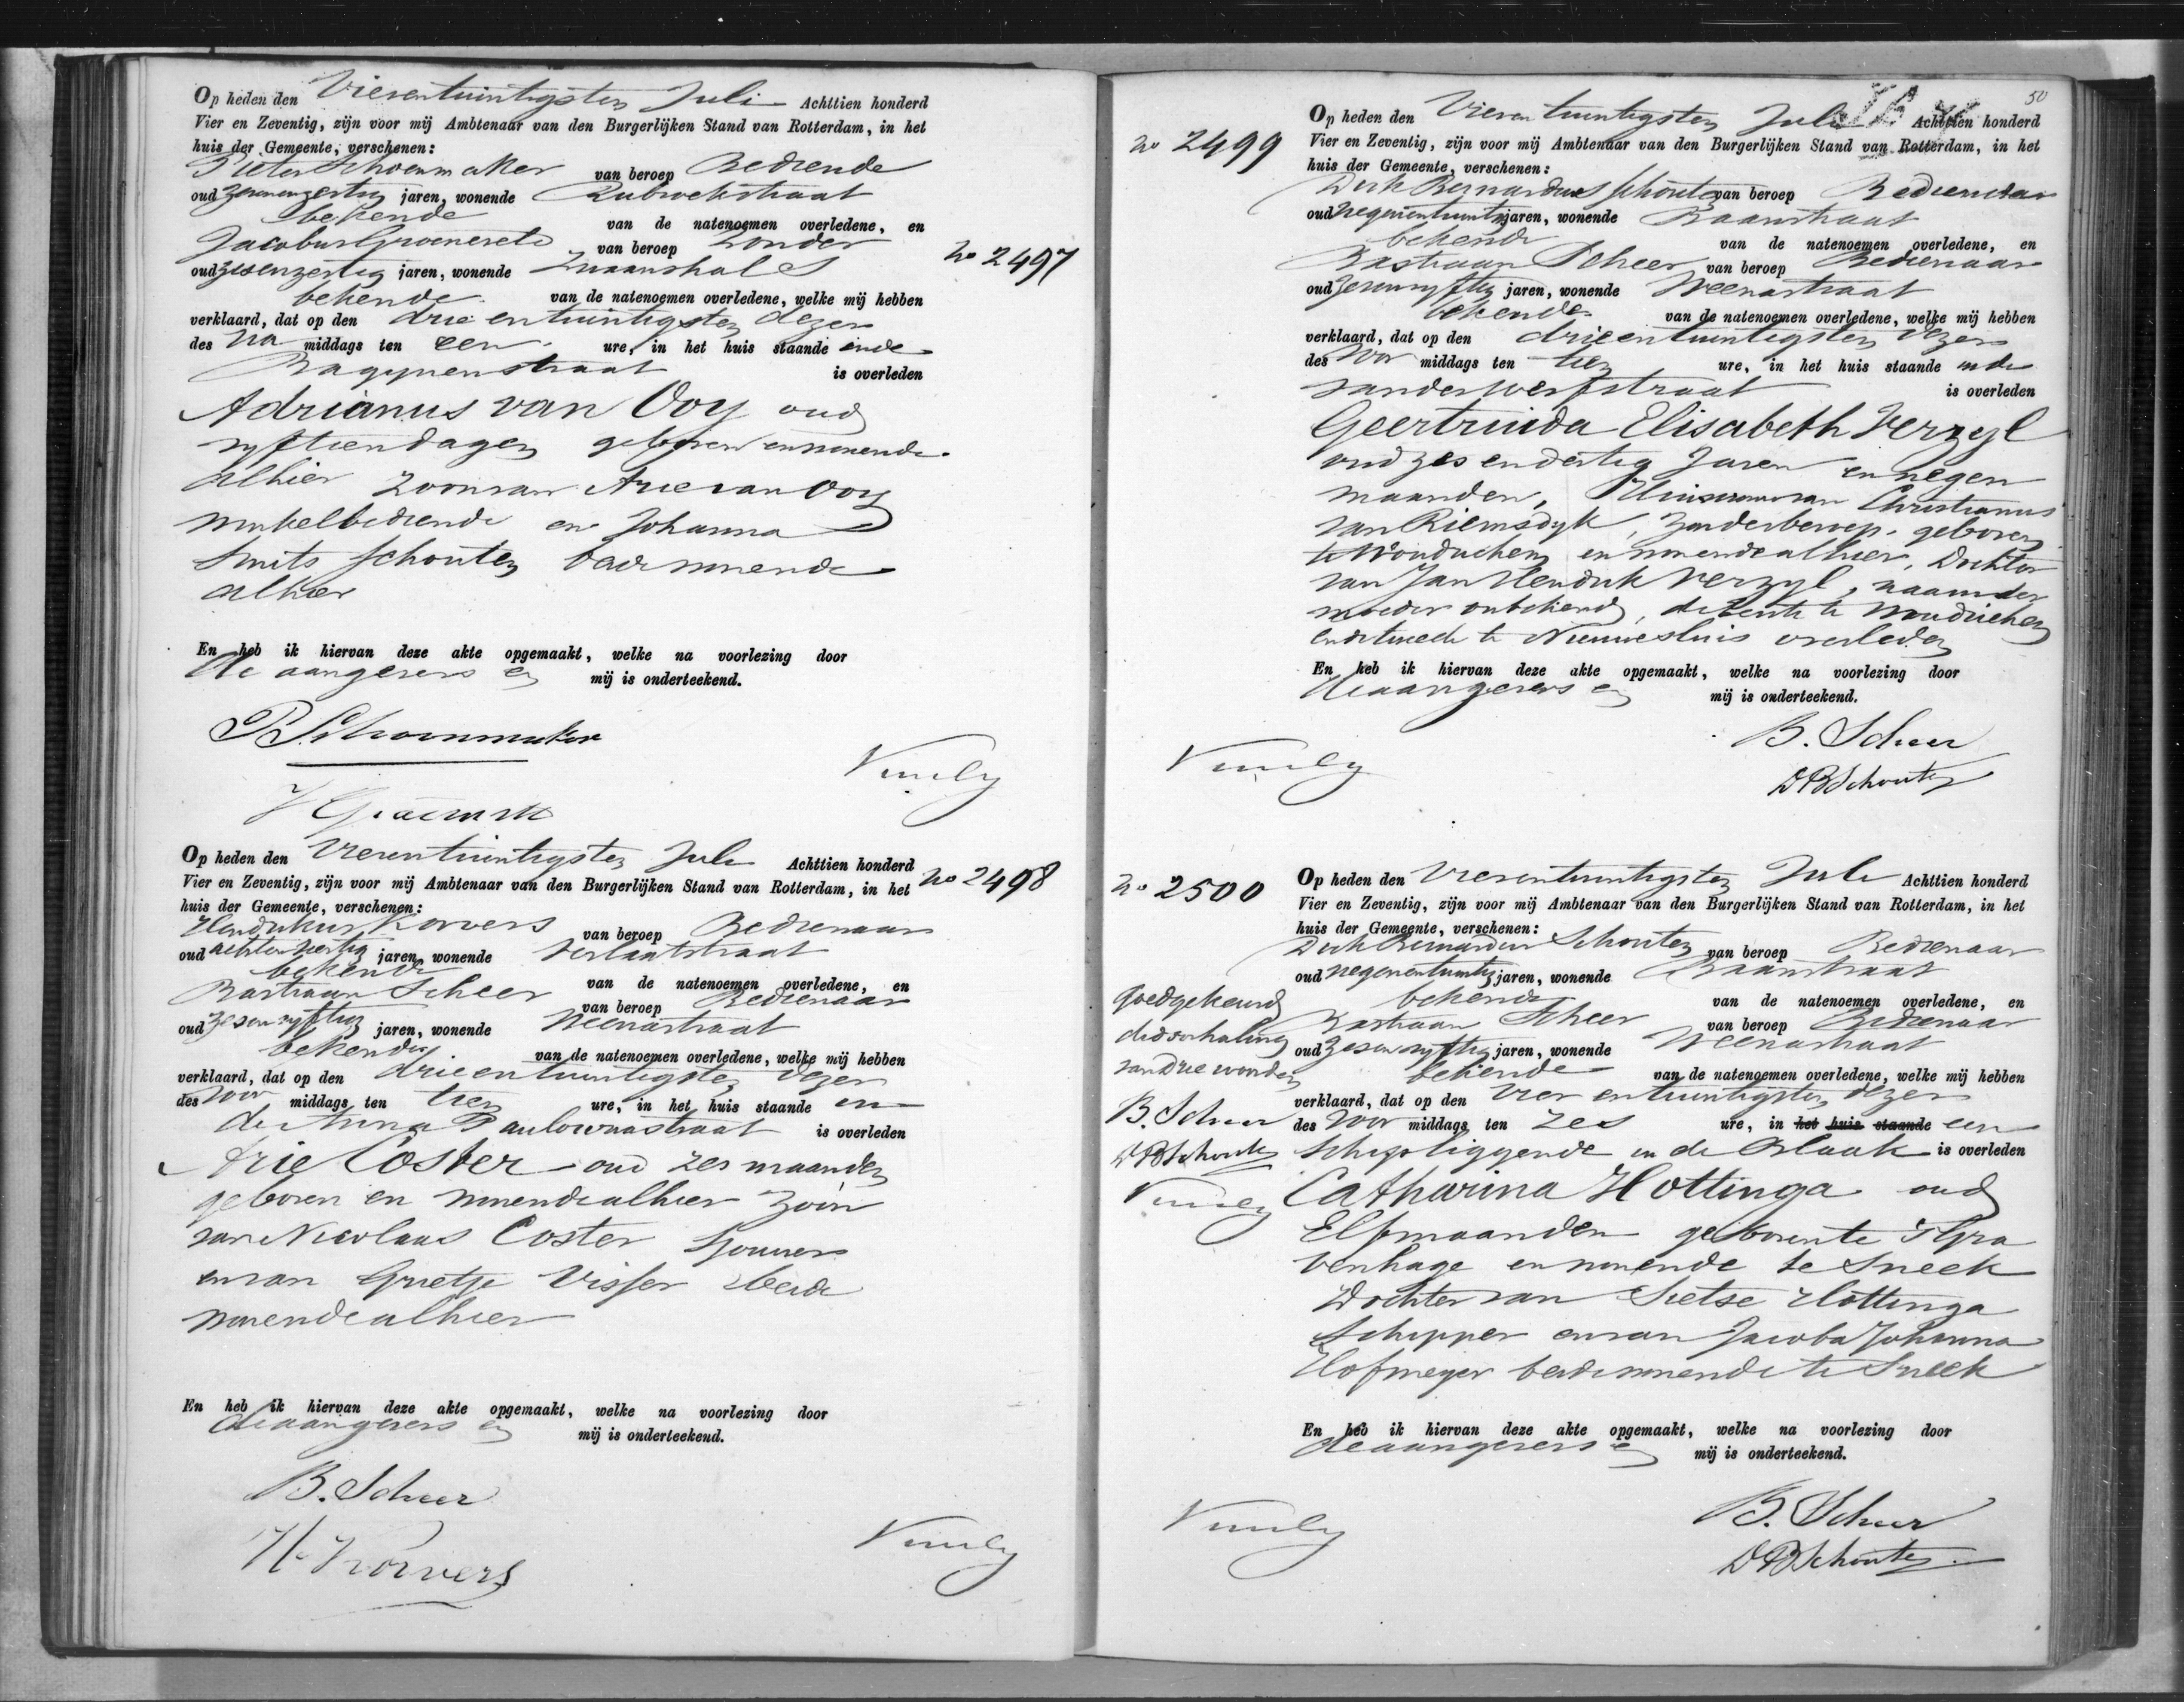 Op heden den Vierentwintigsten Juli Achttien honderd
Vier en Zeventig, zijn voor mij Ambtenaar van den Burgerlijken Stand van Rotterdam, in het
huis der Gemeente, verschenen:
Pieter Schoenmaker van beroep Bediende
oud zevenenzestig jaren, wonende Rubroekstraat
bekende van de natenoemen overledene, en
Jacobus Groeneveld van beroep Zonder
oud zesenzestig jaren, wonende Zwaanshals
bekende van de natenoemen overledene, welke mij hebben
verklaard, dat op den drie entwintigsten dezer
des na middags ten een ure, in het huis staande in de
Bagynenstraat is overleden
No 2497
Adrianus van Ooy oud
vyftien dagen geboren en wonende
alhier zoon van Arie van Ooy
winkelbediende en Johanna
Smits Schouten beide wonende
alhier
En heb ik hiervan deze akte opgemaakt, welke na voorlezing door
de aangevers en mij is onderteekend.
P Schoenmaker
J Groeneveld
Op heden den Vierentwintigsten Juli Achttien honderd
No 2498
Vier en Zeventig, zijn voor mij Ambtenaar van den Burgerlijken Stand van Rotterdam, in het
huis der Gemeente, verschenen:
Hendrikus Korvers van beroep Bedienaar
oud jaren, wonende Verlaatstraat
bekende van de natenoemen overledene, en
Bastiaan Scheer van beroep Bedienaar
oud zesenvyftig jaren, wonende Weenastraat
bekende van de natenoemen overledene, welke mij hebben
verklaard, dat op den drieentwintigsten dezer
des voor middags ten tien ure, in het huis staande in
de Anna Paulownastraat is overleden
Arie Coster oud zes maanden
geboren en wonende alhier zoon
van Nicolaas Coster Sjouwer
en van Grietje Visser beide
wonende alhier
En heb ik hiervan deze akte opgemaakt, welke na voorlezing door
de aangevers en mij is onderteekend.
B. Scheer
H. Korvers
50
No 2499
Op heden den Vierentwintigsten Juli Achttien honderd
Vier en Zeventig, zijn voor mij Ambtenaar van den Burgerlijken Stand van Rotterdam, in het
huis der Gemeente, verschenen:
Dirk Bernardus Schouten van beroep Bedienaar
oud negenentwintig jaren, wonende Baanstraat
bekende van de natenoemen overledene, en
Bastiaan Scheer van beroep Bedienaar
oud zesenvyftig jaren, wonende Weenastraat
bekende van de natenoemen overledene, welke mij hebben
verklaard, dat op den drieentwintigsten dezer
des voor middags ten tien ure, in het huis staande in de
vanderwerfstraat is overleden
Geertruida Elisabeth Verzyl
oud zes endertig Jaren en negen
maanden, Huisvrouw van Christianus
van Riemsdyk, zonder beroep, geboren
te Woudrichem en wonende alhier, Dochter
van Jan Hendrik Verzyl, naam der
moeder onbekend, de eerste te Woudrichem
en de tweede te Nieuwesluis overleden
En heb ik hiervan deze akte opgemaakt, welke na voorlezing door
de aangevers en mij is onderteekend.
B. Scheer
DB Schouten
No 2500
Op heden den Vierentwintigsten Juli Achttien honderd
Vier en Zeventig, zijn voor mij Ambtenaar van den Burgerlijken Stand van Rotterdam, in het
huis der Gemeente, verschenen:
Dirk Bernardus Schouten van beroep Bedienaar
oud negenentwintig jaren, wonende Baanstraat
bekende van de natenoemen overledene, en
Bastiaan Scheer van beroep Bedienaar
oud zesenvyftig jaren, wonende Weenastraat
bekende van de natenoemen overledene, welke mij hebben
verklaard, dat op den vier entwintigsten dezer
des voor middags ten zes ure, in het huis staande een
Schip liggende in de Blaak is overleden
Goedgekeurd
de doorhaling
van drie woorden
B. Scheer
DB Schouten
Catharina Hottinga oud
Elf maanden geboren te 'sGra
venhage en wonende te Sneek
Dochter van Sietse Hottinga
Schipper en van Jacoba Johanna
Hofmeyer beide wonende te Sneek
En heb ik hiervan deze akte opgemaakt, welke na voorlezing door
de aangevers en mij is onderteekend.
B. Scheer
DB Schouten